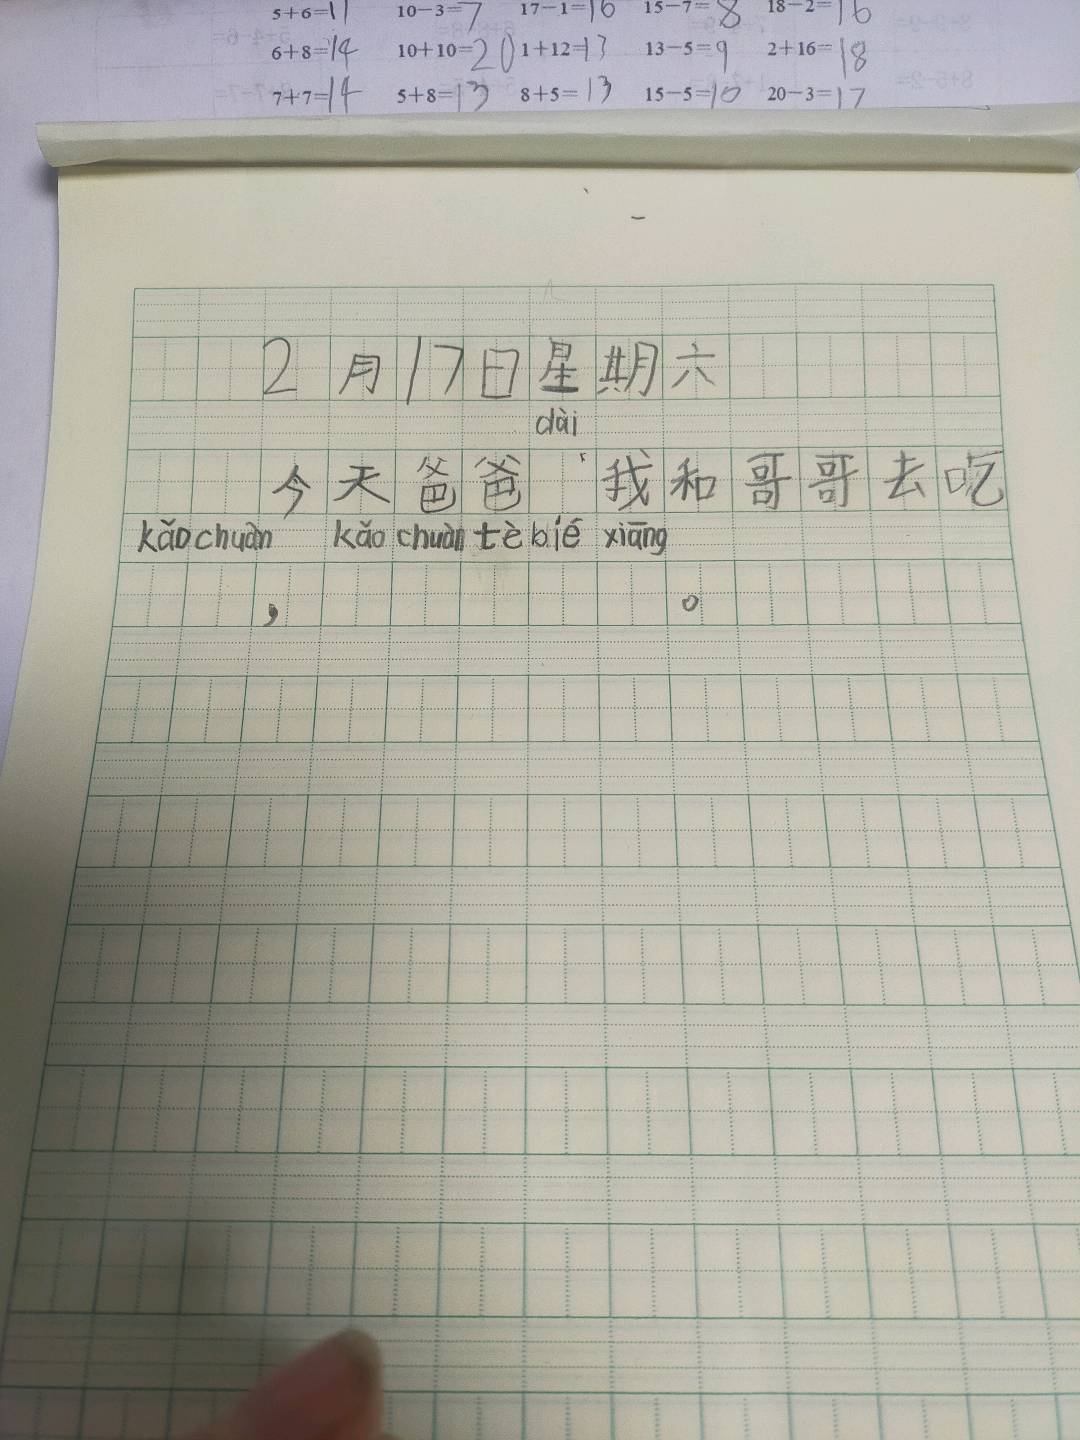 5+6=11 10-3=7 17-1=16 15-7=8 18-2=16
6+8=14 10+10=20 1+12=13 13-5=9 2+16=18
7+7=14 5+8=13 8+5=13 15-5=10 20-3=17
2月17日星期六
dài
今天爸爸 我和哥哥去吃
kǎo chuàn kǎo chuàn tè bié xiāng
， 。